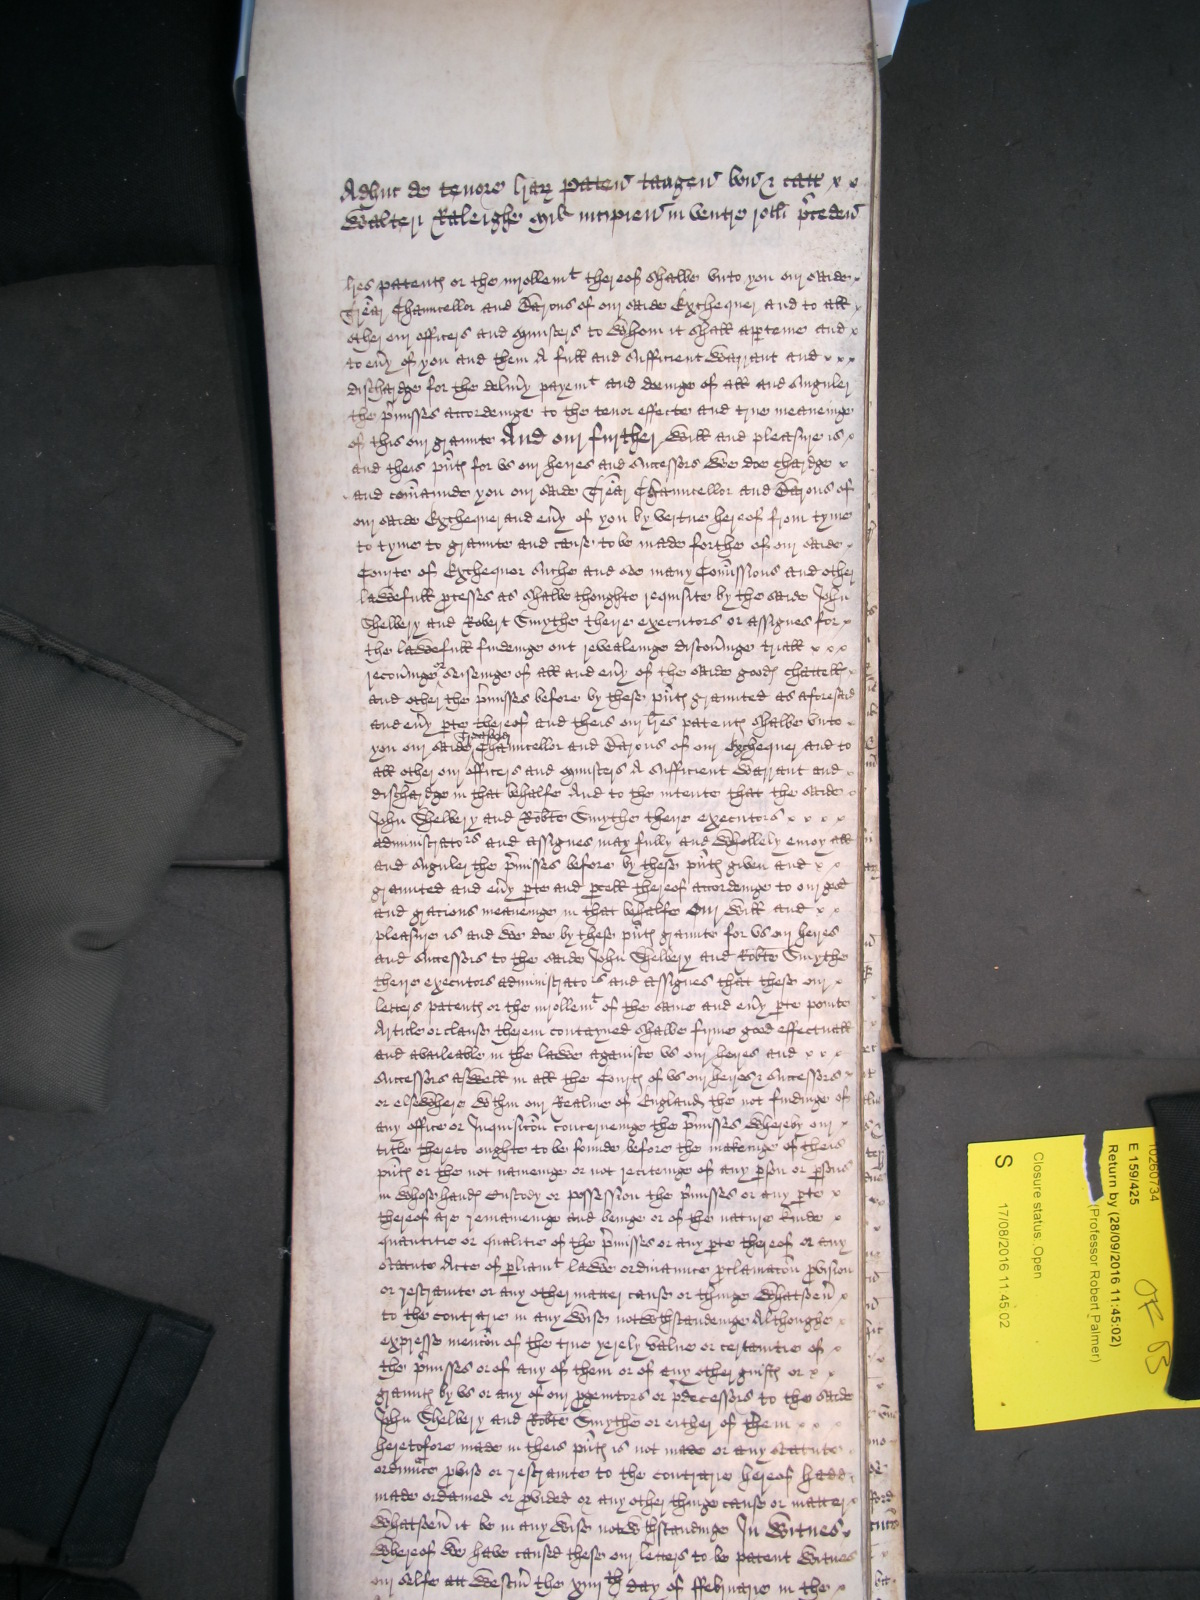 Adhuc de tenore lrar paten tangen bon & catt x x
Walteri Raleighe Milit incipien in ventre rotli preceden
lres patentes or the inrollemt thereof shalbe unto you our saide x
Treasr Chauncellor and Barons of our saide Exchequer and to all x
other our officers and Ministers to whom it shall apteine and x
to eny of you and them A full and sufficient warrant and x x x
dischardge for the delivy payemt and doeinge of all and singuler
the pmisses accordeinge to the tenor effecte and true meaneinge
of this our graunte And our further will and pleasure is x
and theis pnts for us our heires and successors We doe chardge x
and comaunde you our saide Treasr Chauncellor and Barons of
our saide Exchequer and eny of you by vertue hereof from tyme
to tyme to graunte and cause to be made forthe of our saide x
Courte of Exchequor suche and soe many Comissions and other
lawefull pcesses as shalbe thoughte requisite by the saide John
Shelbery and Robert Smythe theire executors or assignes for x
the lawefull findeinge out revealeinge discoveinge triall x x x
recovinge or seiseinge of all and eny of the saide goods chattells
and other the pmisses before by these pnts graunted as aforesaid
and eny pte thereof and theis our lres patents shalbe unto x
you our saide Treasorer Chauncellor and Barons of our Exchequer and to
all other our officers and Ministers A sufficient warrant and x
dischardge in that behalfe And to the intente that the saide x
John Shelbery and Robte Smythe theire executors x x x x
administrators and assignes may fully and whollely enioy all
and singuler the pmisses before by these pnts given and x x
graunted and eny pte and pcell thereof accordeinge to our good
and gracious meaneinge in that behalfe Our will and x x
pleasure is and we doe by these pnts graunte for us our heires
and successors to the saide John Shelbery and Robte Smythe
theire executors administrators and assignes that these our x
letters patents or the inrollemt of the same and eny pte pointe
Article or clause therein contayned shalbe firme good effectuall
and availeable in the lawe againste us our heires and x x x
successors aswell in all the Courts of us our heires & successors x
or elsewhere wthin our Realme of England the not findinge of
any office or Inquisicon concerneinge the pmisses whereby our x
title thereto oughte to be founde before the makeinge of theis
pnts or the not nameinge or not reciteinge of any pson or psons
in whose hands Custody or possession the pmisses or any pte x
thereof are remaineinge and beinge or of the nature kinde x
quantitie or qualitie of the pmisses or any pte thereof or any
statute Acte of pliamt lawe ordinaunce pclamacon pvision
or restrainte or any other matter cause or thinge whatsoev x
to the contrarie in any wise notwthstandeinge Althoughe x
expresse mencon of the true yerely value or certaintie of x
the pmisses or of any of them or of any other guifts or x x
graunts by us or any of our pgenitors or pdecessors to the saide
John Shelbery and Robte Smythe or either of them x x x
heretofore made in theis pnts is not made or any statute
ordinnce pvise or restrainte to the contrarie hereof hadd
made ordained or pvided or any other thinge cause or matter x
whatsoev it be in any wise notwthstandinge In Witnes x
whereof we have caused these our letters to be patent Witnes
our selfe att Westm the xiiiith day of ffebruarie in the x
10260734
E 159/425
Return by (28/09/2016 11:45:02)
(Professor Robert Palmer)
Closure status: Open
S 17/08/2016 11:45:02